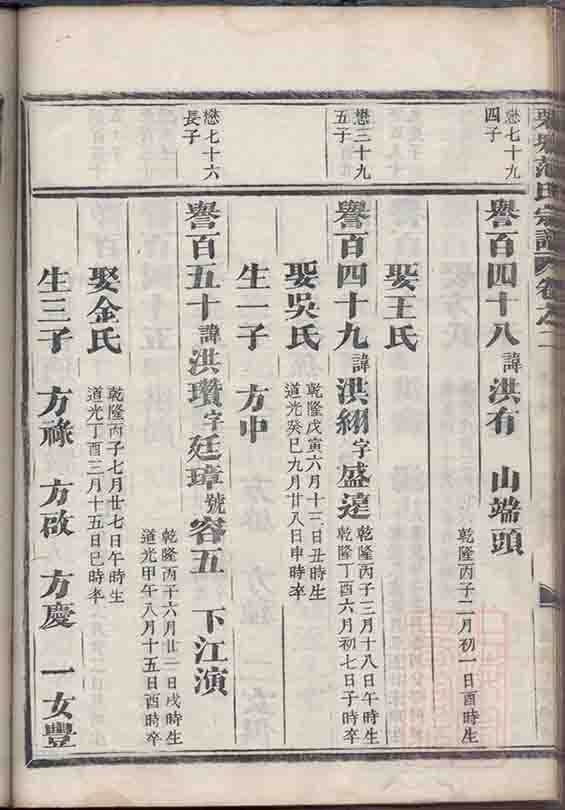 范氏宗譜 卷之二
懋七十九
四子
譽百四十八 諱 洪有 山端頭
乾隆丙子二月初一日酉時生
娶王氏
懋三十九
五子
譽百四十九 諱 洪翙 字 盛遠
乾隆丙子三月十八日午時生
乾隆丁酉六月初七日子時卒
娶吳氏
乾隆戊寅六月十三日丑時生
道光癸巳九月廿八日申時卒
生一子 方中
懋七十六
長子
譽百五十 諱 洪瓚 字 廷璋 號 容五 下江演
乾隆丙子六月廿二日戌時生
道光甲午八月十五日酉時卒
娶金氏
乾隆丙子七月廿七日午時生
道光丁酉三月十五日巳時卒
生三子 方祿 方啟 方慶 一女豐